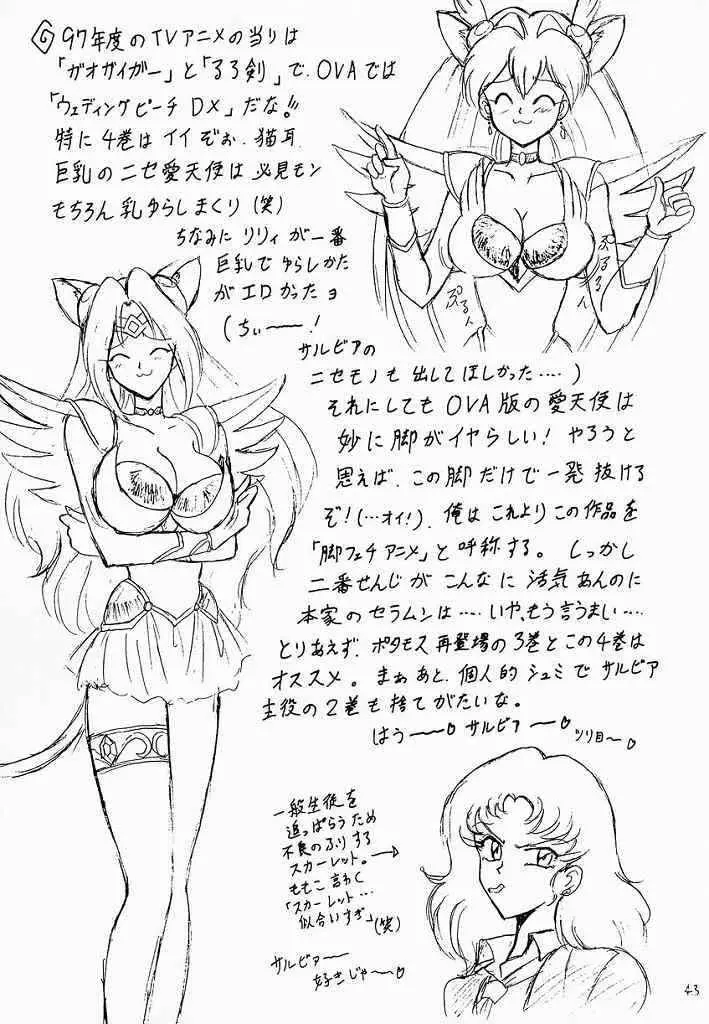 97年度のTVアニメの当りは
「ガオガイガー」と「るろ剣」で、OVAでは
「ウェディングピーチDX」だな!!
特に4巻はイイぞぉ、猫耳、
巨乳のニセ愛天使は必見モン
もちろん乳ゆらしまくり(笑)
ちなみにリリィが一番
巨乳でゆらしかた
がエロかったョ
(ちぃ〜〜!
サルビアの
ニセモノも出してほしかった……)
それにしてもOVA版の愛天使は
妙に脚がイヤらしい!やろうと
思えば、この脚だけで一発抜ける
ぞ!(…オイ!)、俺はこれよりこの作品を
「脚フェチアニメ」と呼称する。しっかし
二番せんじがこんなに活気あんのに
本家のセラムンは……いや、もう言うまい……
とりあえず、ポタモス再登場の3巻とこの4巻は
オススメ。まぁあと、個人的シュミでサルビア
主役の2巻も捨てがたいな。
はう〜〜♡サルビァ〜♡
ツリ目〜♡
ぷるるん
ぷるん
一般生徒を
追っぱらうため
不良のふりする
スカーレット。→
ももこ言わく
「スカーレット…
似合いすぎ」(笑)
サルビァ〜〜
好きじゃ〜〜♡
43